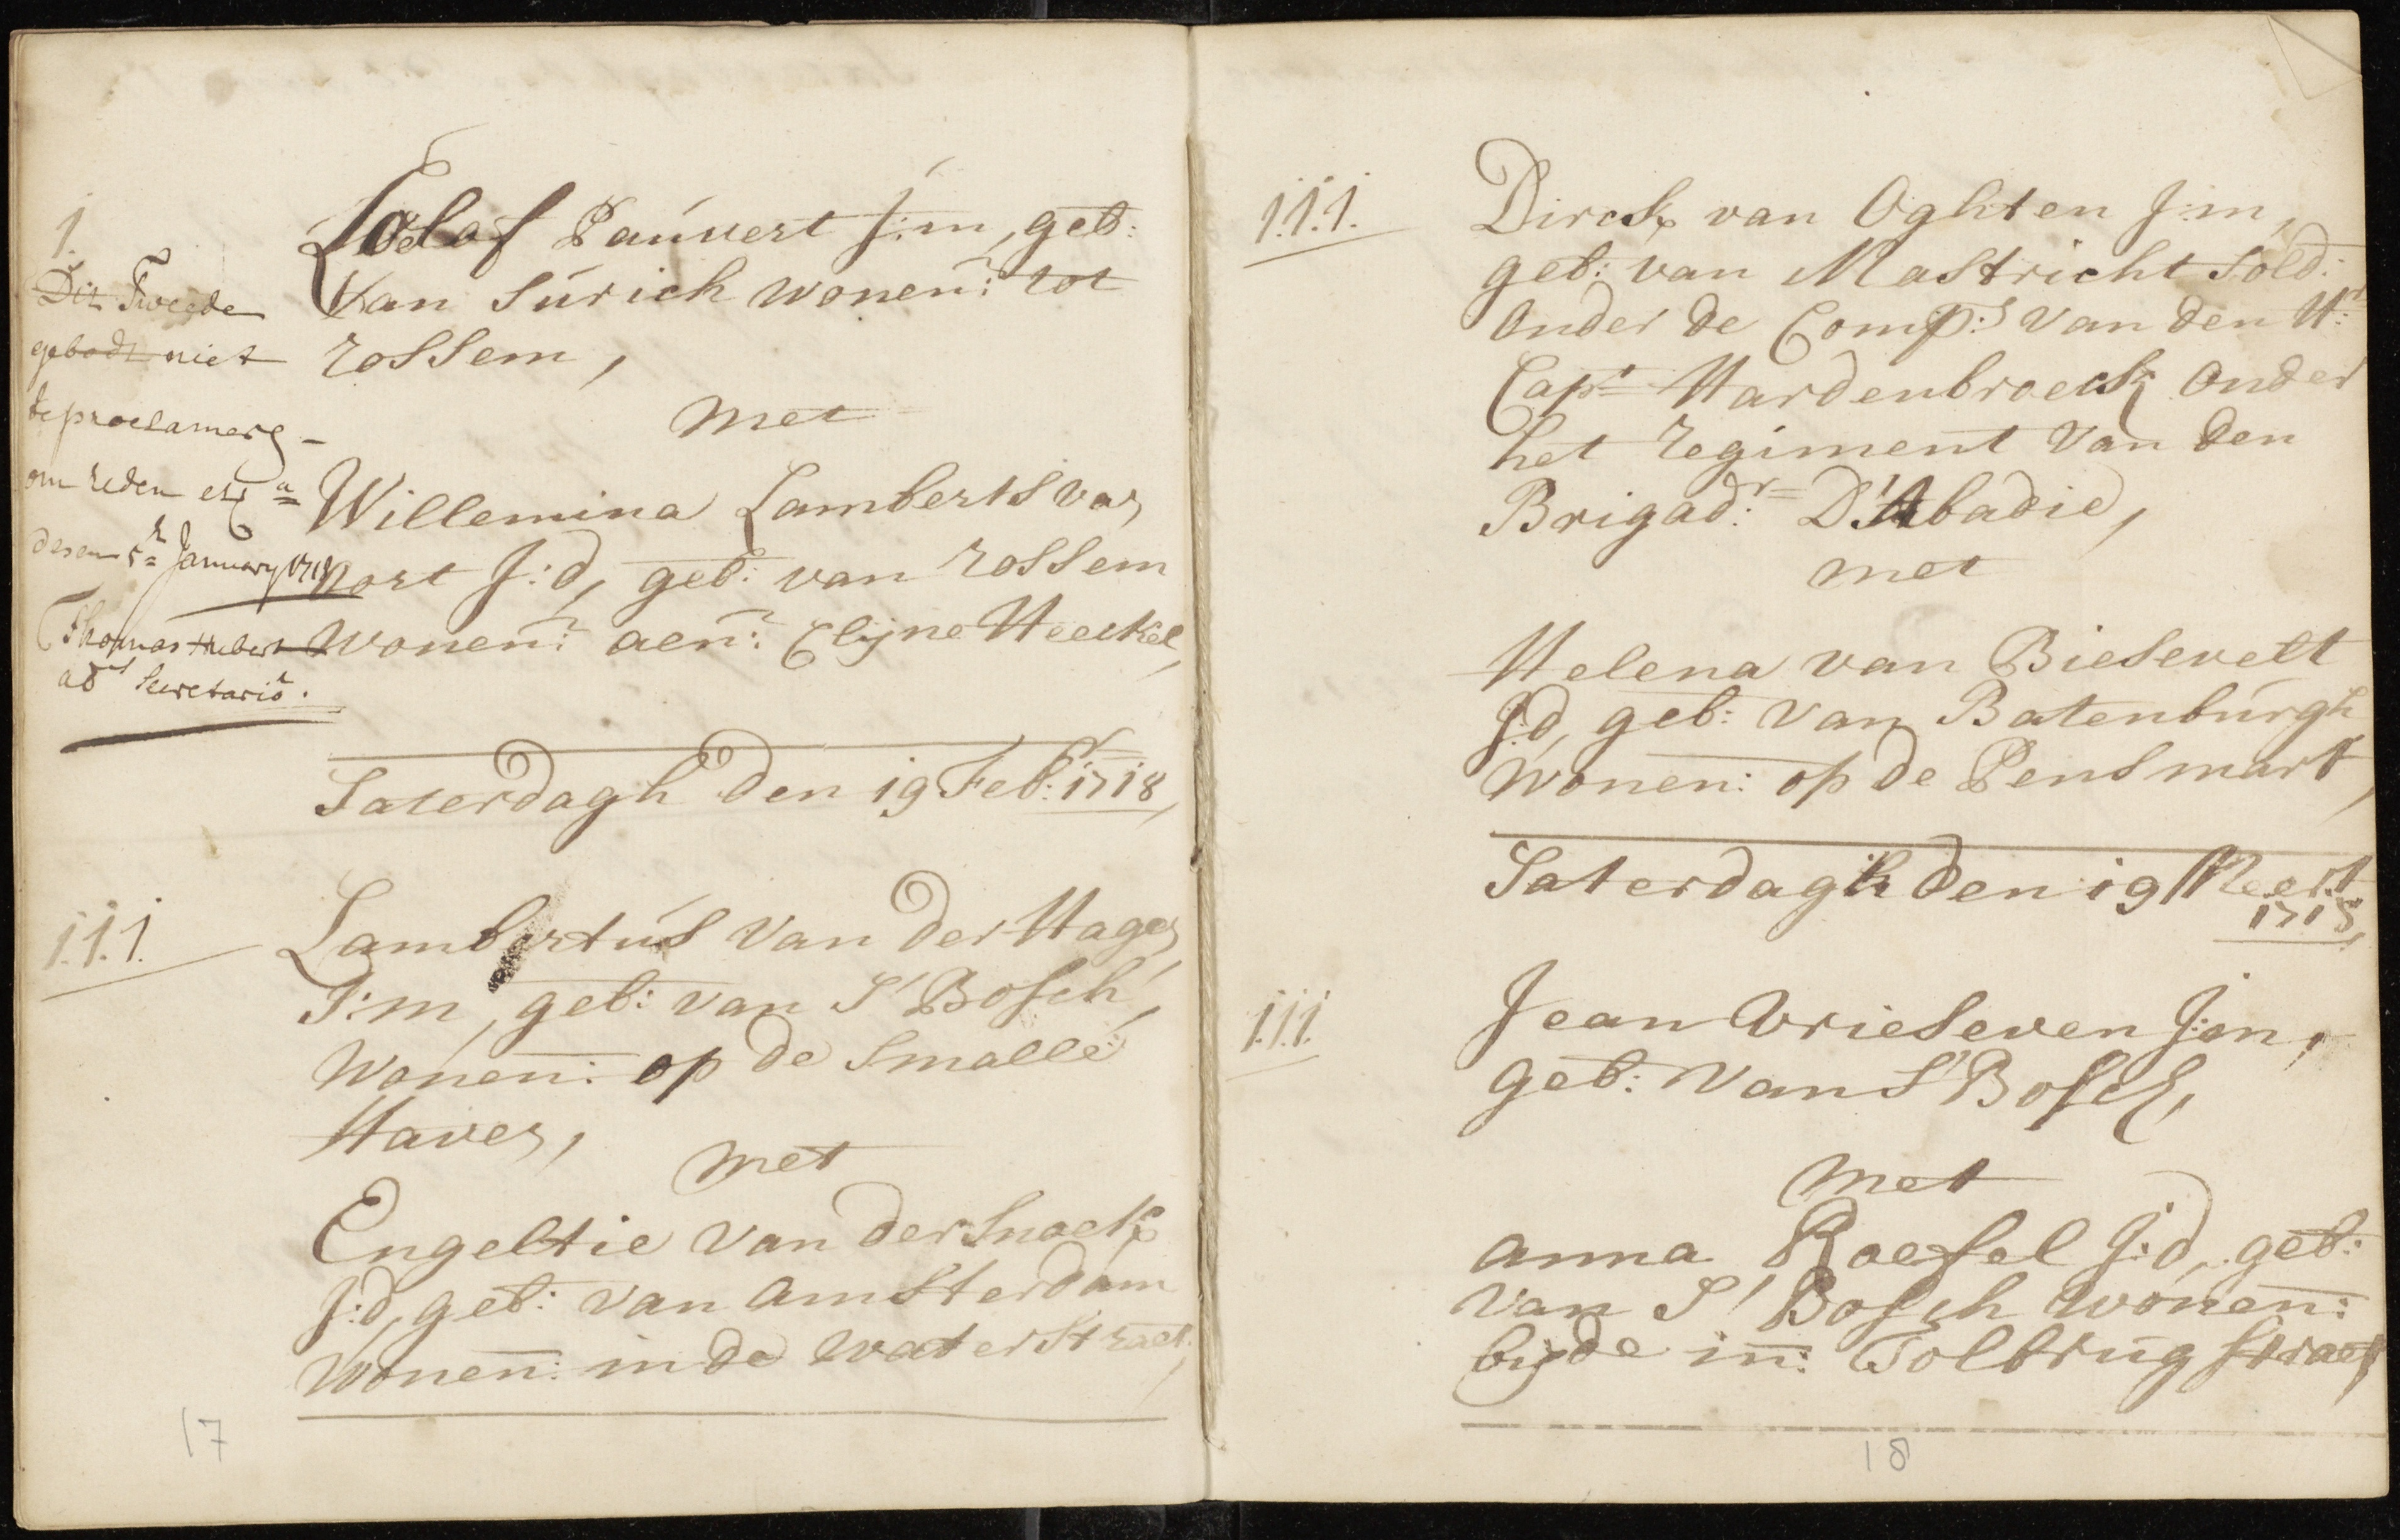 1.
Dit Tweede
gebodt niet
te proclameren
om reden etc.a
desen 5e January 1718
Thomas Hubert
adt Secretaris.
Loelof Pauwert J:m, geb:
Van Surich wonen: tot
rossem,
met
Willemina Lamberts van
Nort J:d, geb: van rossem
wonen: aen: Clijne Heeckel,
Saterdagh den 19 Feb: 1718,
1.1.1.
Lambertus van der Hagen
J:m, geb: van S' Bosch,
wonen: op de Smalle
Haven,
met
Engeltie van der Snoeck
J:d, geb: van amsterdam
wonen: in de waterstraet,
17
1.1.1.
Dirck van Oghten J:m,
geb: van Mastricht Sold:
onder de Comp: van den Hr:
Capt Hardenbroeck onder
het regiment van den
Brigad:r D'Abadie,
met
Helena van Biesevelt
J:d, geb: van Batenburgh
wonen: op de Pensmart,
Saterdagh den 19 Meert
1718,
1.1.1.
Jean Vrieseven J:m,
geb: van S' Bosch,
met
anna Roefel J:d, geb:
van S' Bosch wonen:
bijde in: Tolbrugstraet
18